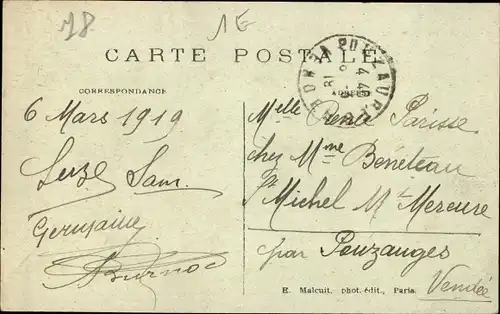 78
1E
CARTE POSTALE
CORRESPONDANCE
6 Mars 1919
Germaine
Melle Renée Parisse
chez Mme Bénéteau
St Michel Mt Mercure
par Pouzauges
Vendée
E. Malcuit, phot. édit., Paris.